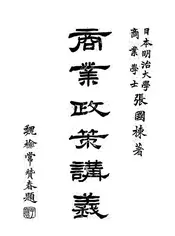 日本明治大學
商業學士張國棟著
商業政策講義
魏徐常贊春題